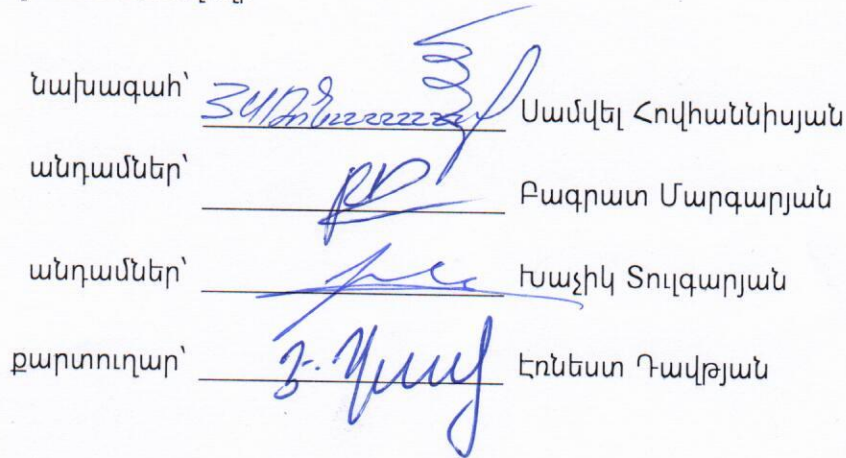 նախագահ՝ Սամվել Հովհաննիսյան
անդամներ՝ Բագրատ Մարգարյան
անդամներ՝ Խաչիկ Տուլգարյան
քարտուղար՝ Էռնեստ Դավթյան